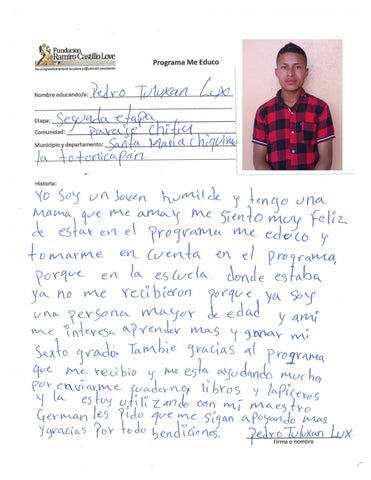 Fundacion
Ramiro Castillo Love
Programa Me Educo
Nombre educando/a: Pedro Tuluxan Lux
Etapa: Segunda etapa
Comunidad: paraje chitiu
Municipio y departamento: Santa Maria chiquimu
la totonicapán.
Historia:
Yo soy un Joven humilde y tengo una
mamá que me ama y me siento muy feliz
de estar en el programa me educo y
tomarme en cuenta en el programa,
porque en la escuela. donde estaba
ya no me recibieron porque ya soy
una persona mayor de edad y ami
me interesa aprender mas y ganar mi
Sexto grado. Tambie gracias al programa
que me recibio y me esta ayudando mucha
por enviarme cuaderno, libros y lapiceros
y la estoy utilizando con mi maestro
German les pido que me sigan apoyando mas
y gracias por todo bendiciones. Pedro Tuluxan Lux.
firma o nombre